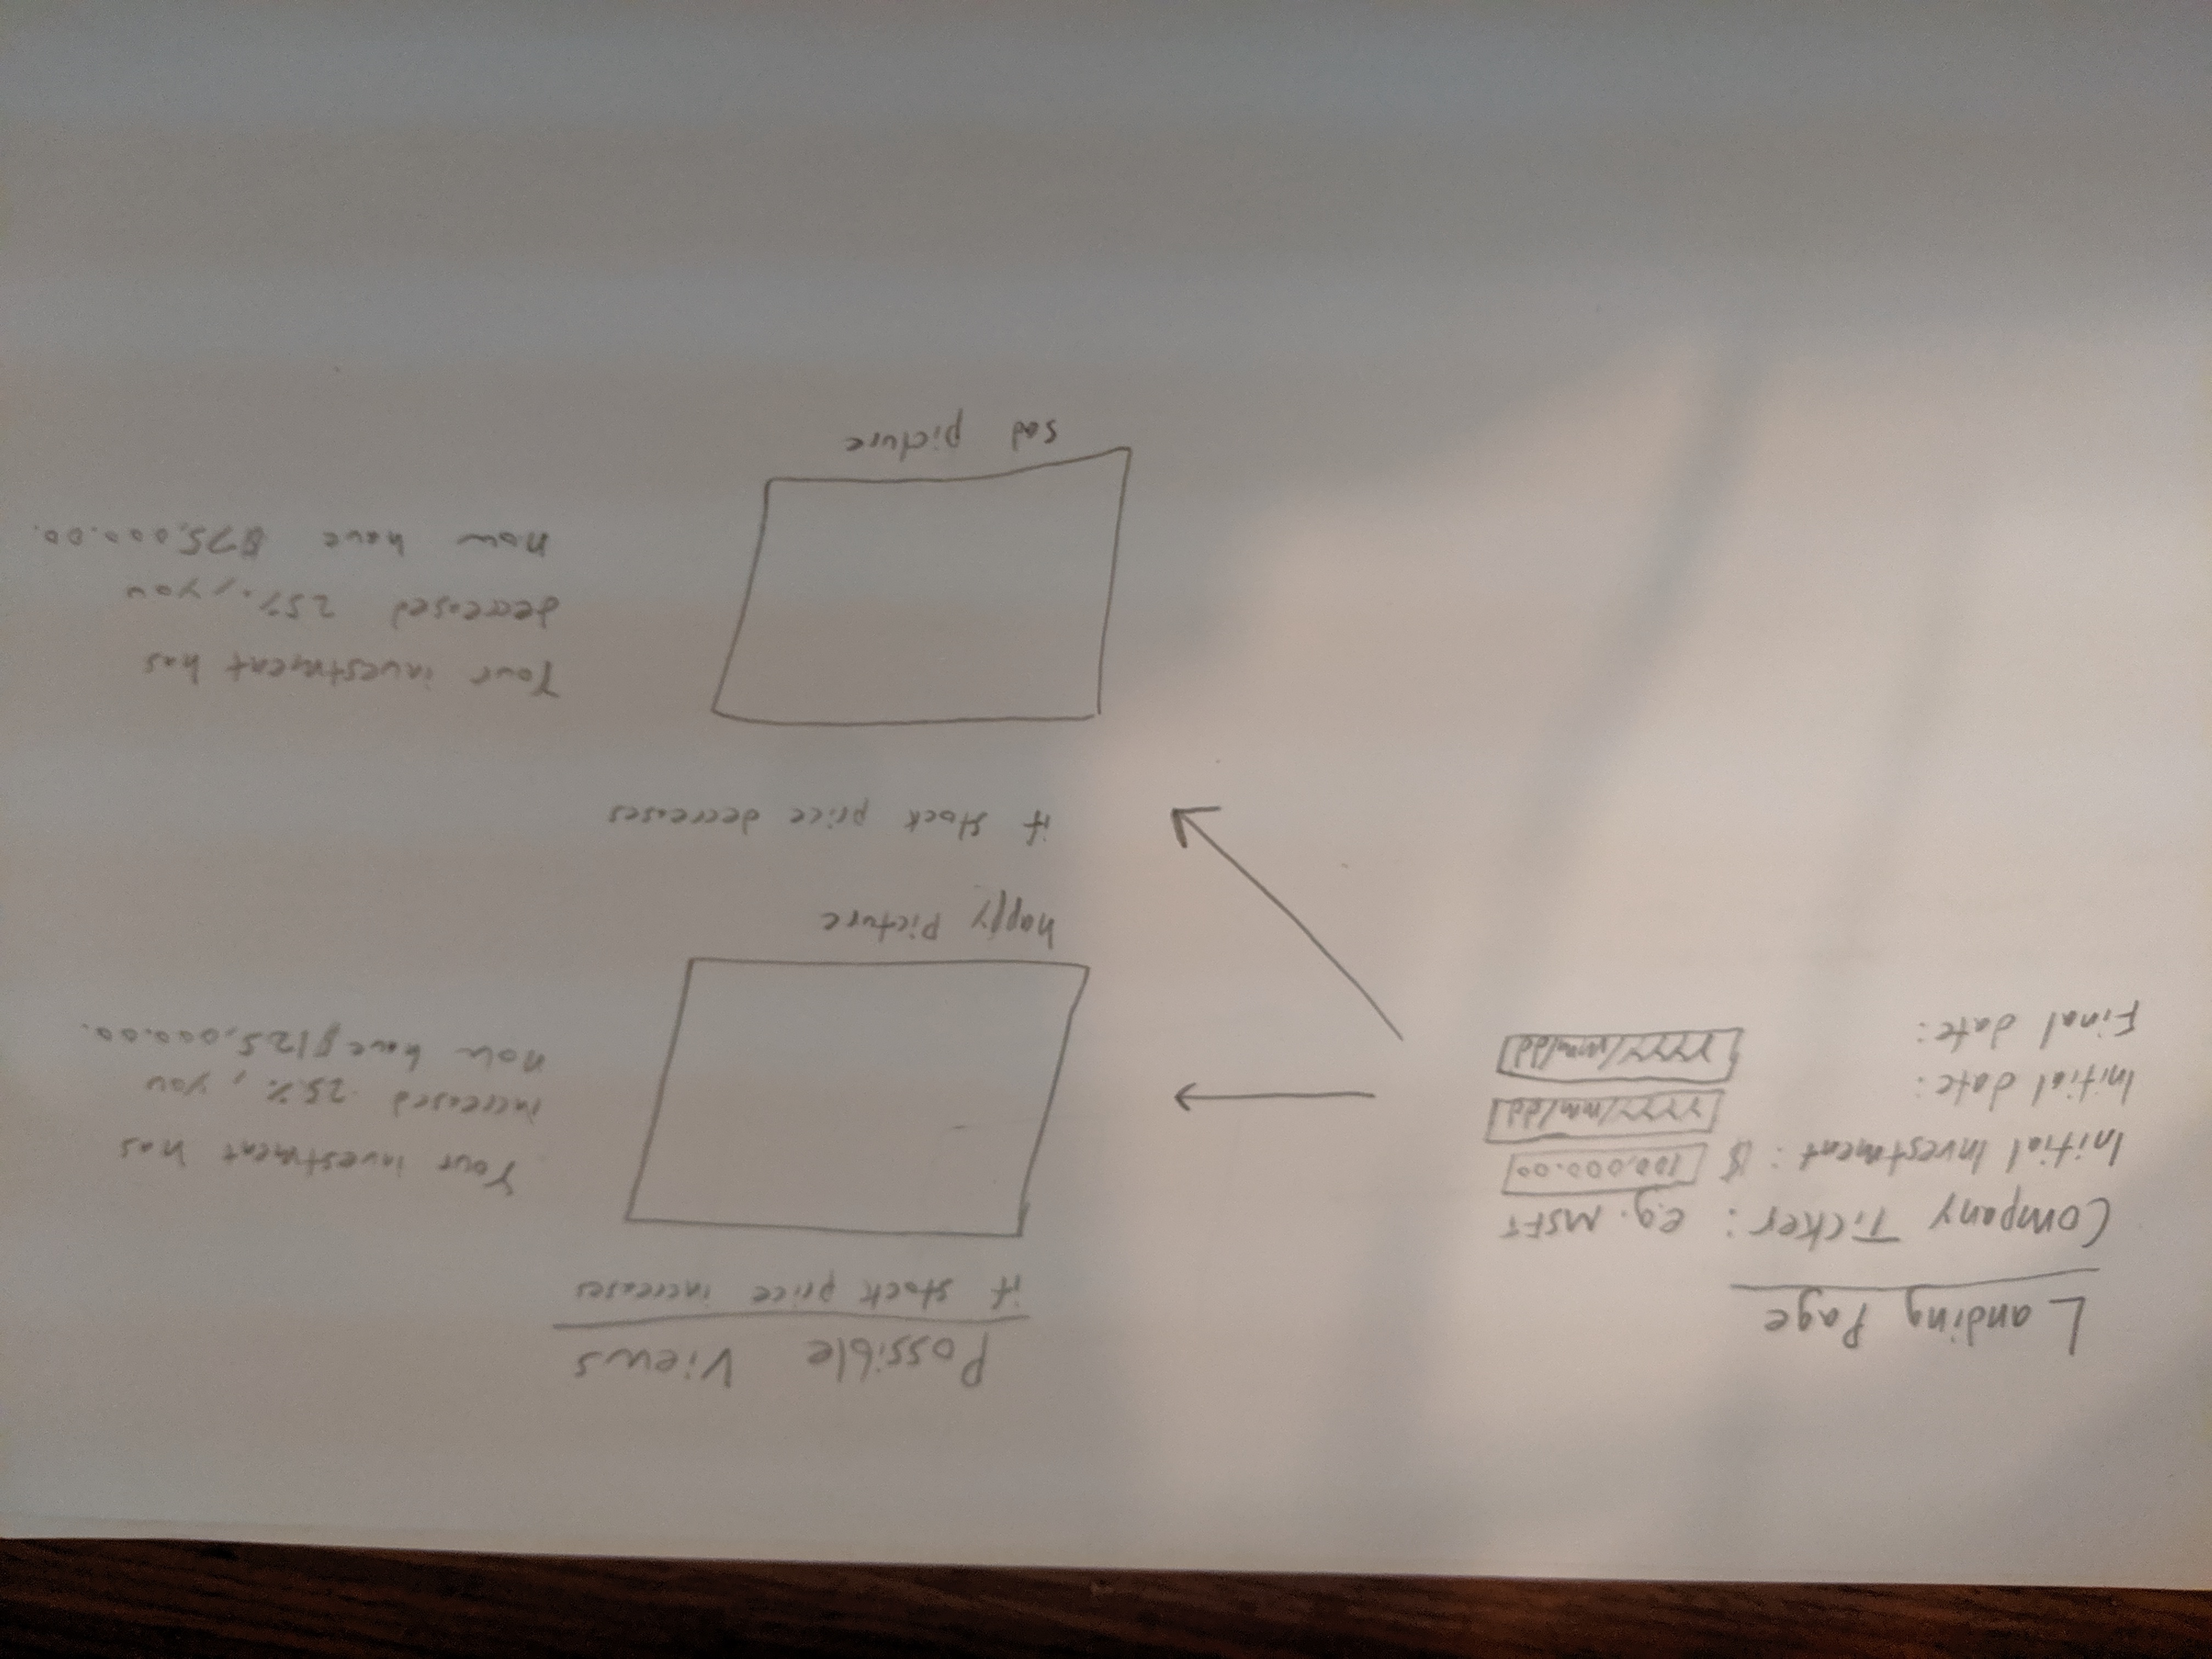 Landing Page
Company Ticker: e.g. MSFT
Initial Investment: $ 100,000.00
Initial date: YYYY/mm/dd
Final date: YYYY/mm/dd
Possible Views
if stock price increases
Your investment has
increased 25%, you
now have $125,000.00.
happy Picture
if stock price decreases
Your investment has
decreased 25%, you
now have $75,000.00.
sad picture